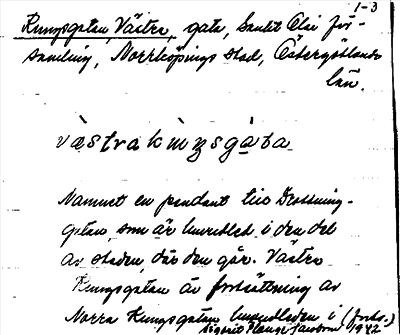 1-3
Kungsgatan, Västra, gata, Sankt Olai för-
samling, Norrköpings stad, Östergötlands
län.
västra kuŋsgàta
Namnet en pendant till Drottning-
gatan, som är huvudled i den del
av staden, där den går. Västra
Kungsgatan är fortsättning av
Norra Kungsgatan, huvudleden i (forts.)
1942